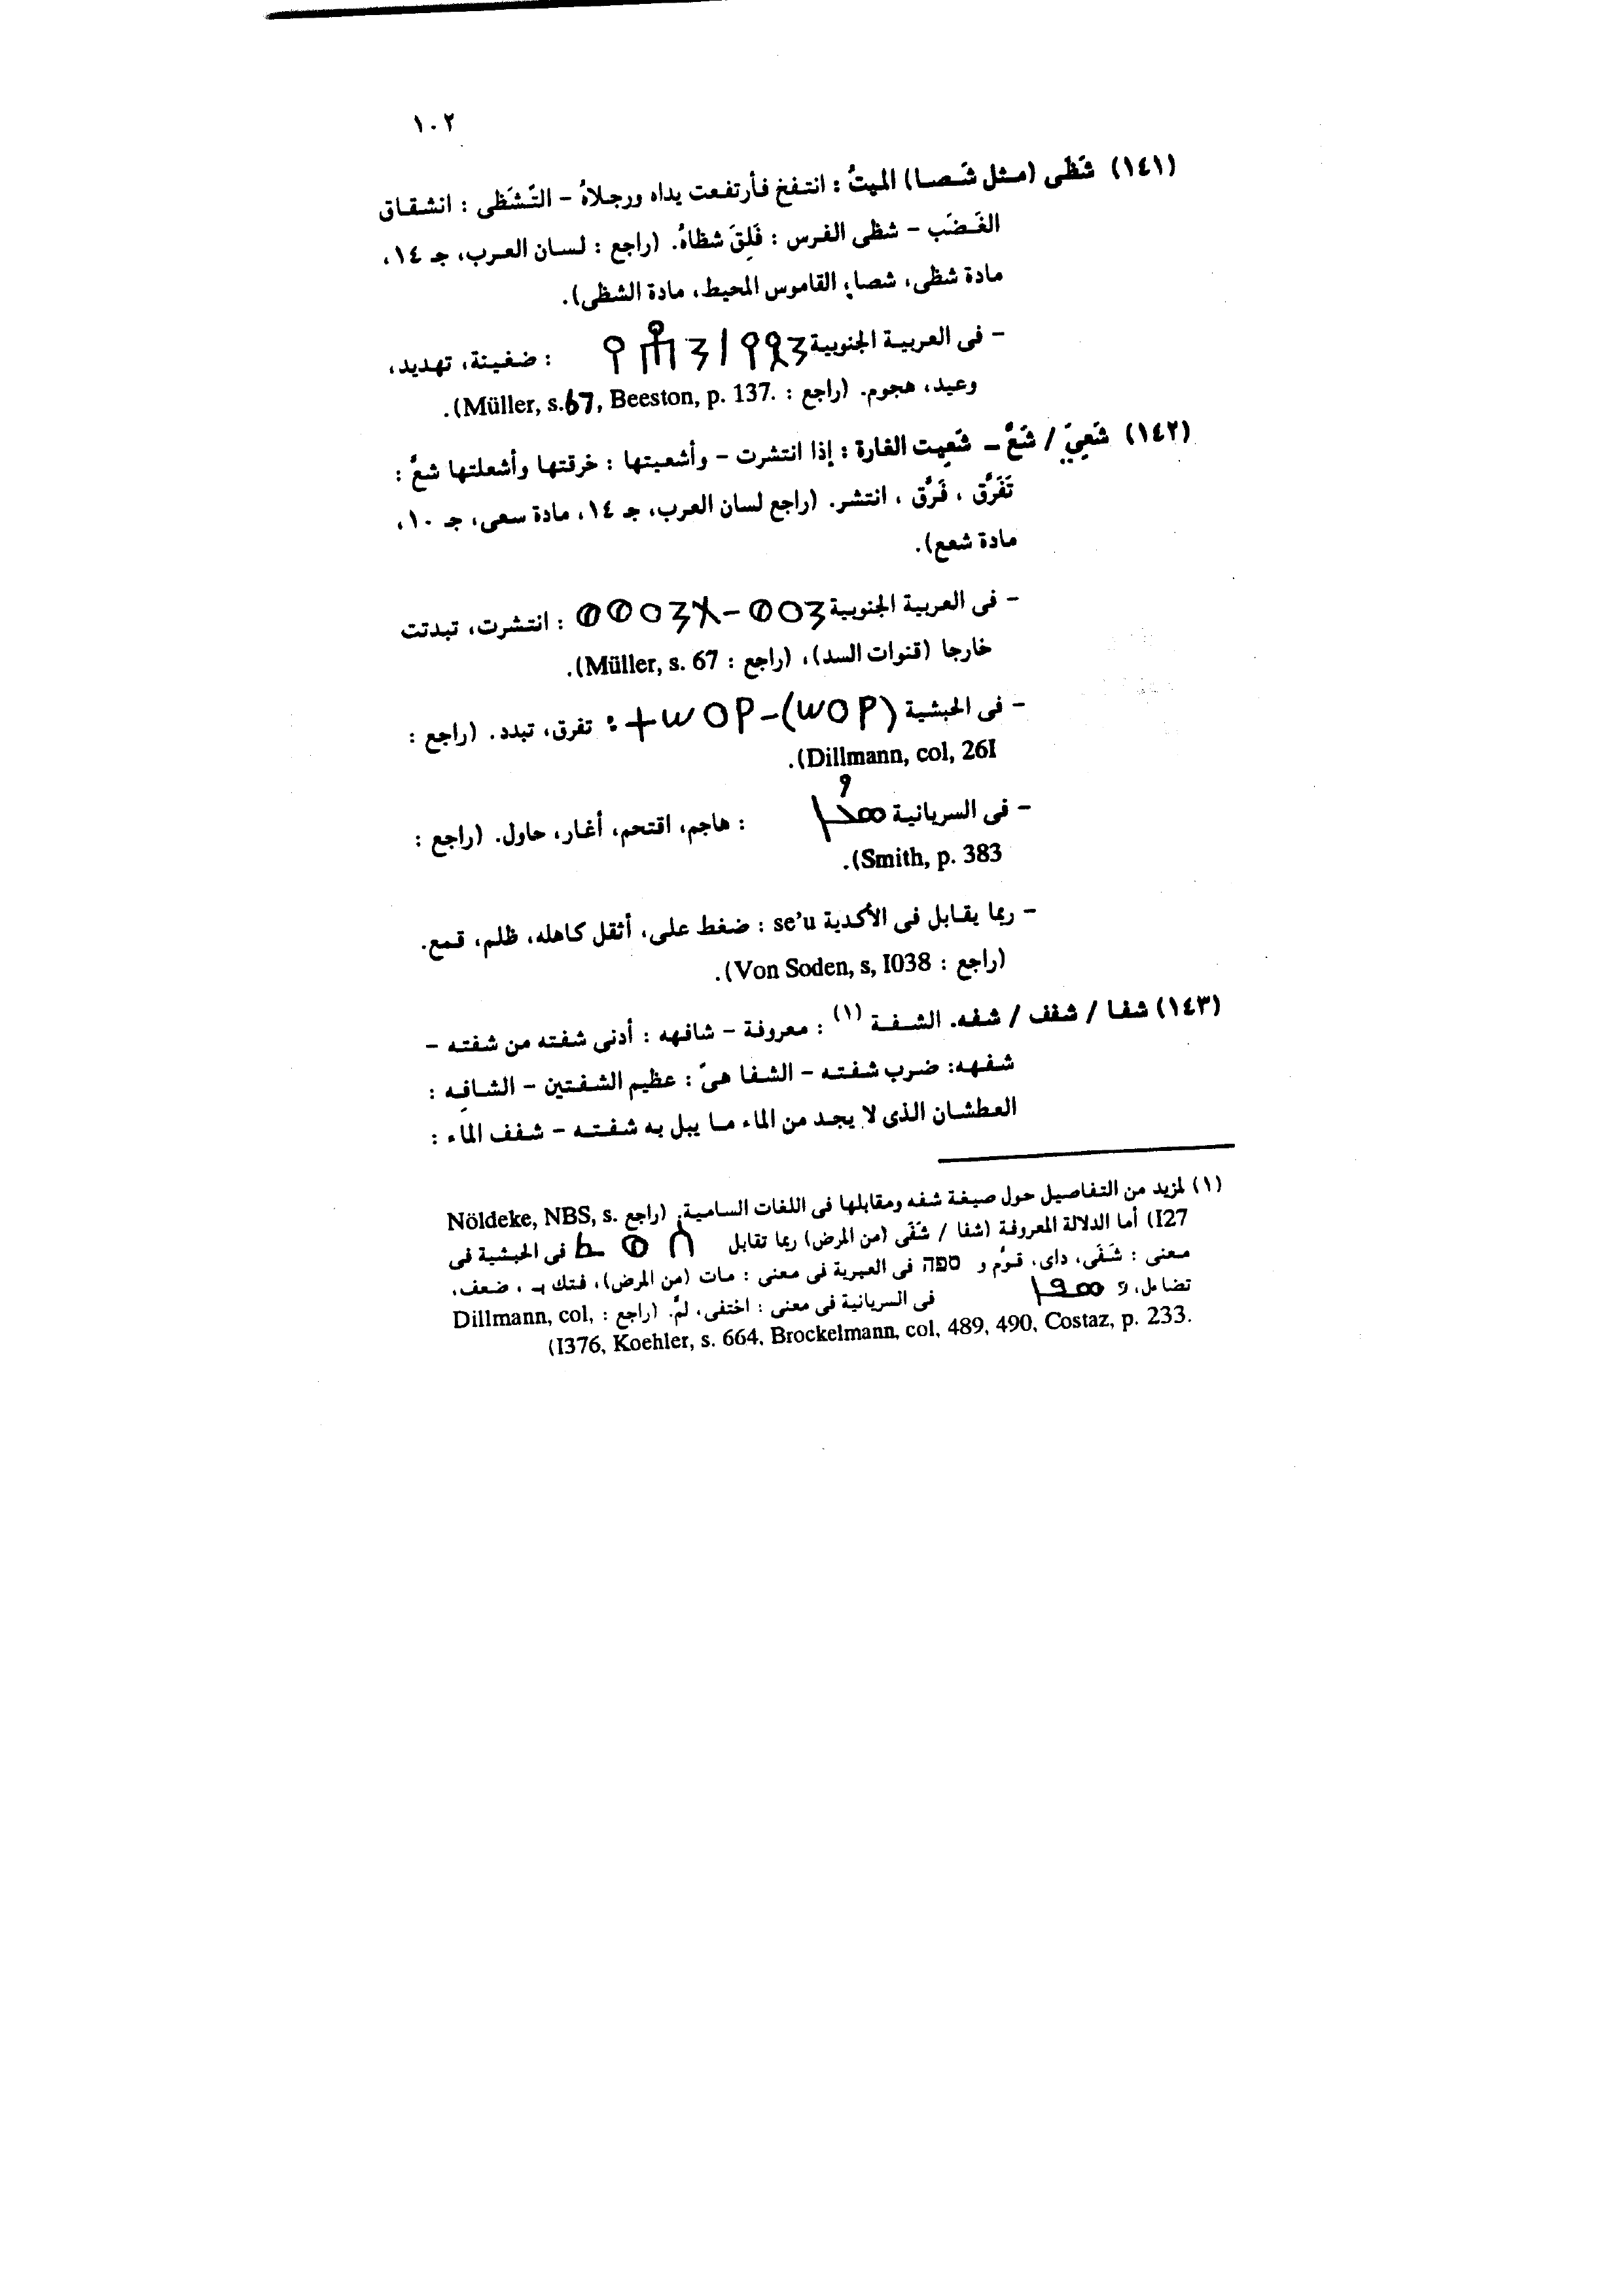 ١٠٢
(١٤١) شَظَى (مثل شَصا) الميتُ : انتفخ فأرتفعت يداه ورجلاهُ – التّشَظى : انشقاق
الغَضَب – شظى الفرس : فَلِقَ شظاهُ. (راجع : لسان العرب، جـ ١٤،
مادة شظى، شصا، القاموس المحيط، مادة الشظى).
– فى العربية الجنوبية : ضغينة، تهديد،
وعيد، هجوم. (راجع : Müller, s.67, Beeston, p. 137.).
(١٤٢) شَعِيَ / شَعَّ – شَعِيت الغارة : إذا انتشرت – وأشعيتها : خرقتها وأشعلتها شعَّ :
تَفَرَّق ، فَرَّق ، انتشر. (راجع لسان العرب، جـ ١٤، مادة سعى، جـ ١٠،
مادة شعع).
– فى العربية الجنوبية : انتشرت، تبدتت
خارجا (قنوات السد)، (راجع : Müller, s. 67).
– فى الحبشية : تفرق، تبدد. (راجع :
Dillmann, col, 26I).
– فى السريانية : هاجم، اقتحم، أغار، حاول. (راجع :
Smith, p. 383).
– ربما يقابل فى الأكدية se’u : ضغط على، أثقل كاهله، ظلم، قمع.
(راجع : Von Soden, s, I038).
(١٤٣) شفا / شفف / شفه. الشفة (١) : معروفة – شافهه : أدنى شفته من شفته –
شفهه: ضرب شفته – الشفا هىّ : عظيم الشفتين – الشافِه :
العطشان الذى لا يجد من الماء ما يبل به شفته – شفف الماء :
(١) لمزيد من التفاصيل حول صيغة شفه ومقابلها فى اللغات السامية. (راجع Nöldeke, NBS, s.
I27) أما الدلالة المعروفة (شفا / شَفَى (من المرض) ربما تقابل فى الحبشية فى
معنى : شَفَى، داى، قوّم و ספה فى العبرية فى معنى : مات (من المرض)، فتك بـ ، ضعف،
تضاءل، و فى السريانية فى معنى : اختفى، لمَّ. (راجع : Dillmann, col,
I376, Koehler, s. 664, Brockelmann, col, 489, 490, Costaz, p. 233.)